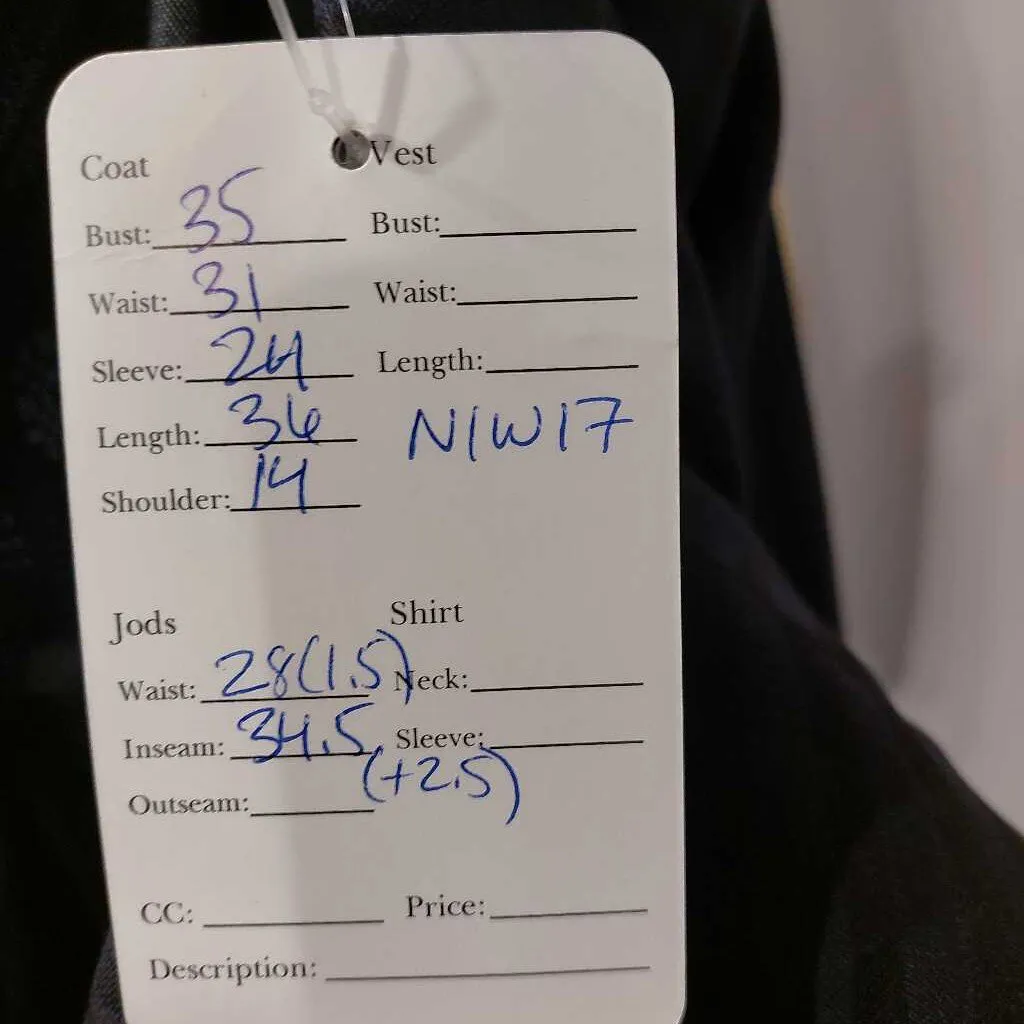 Coat Vest
Bust: 35 Bust:
Waist: 31 Waist:
Sleeve: 24 Length:
Length: 36 N1W17
Shoulder: 14
Jods Shirt
Waist: 28(1.5) Neck:
Inseam: 34.5 Sleeve:
(+2.5)
Outseam:
CC: Price:
Description: